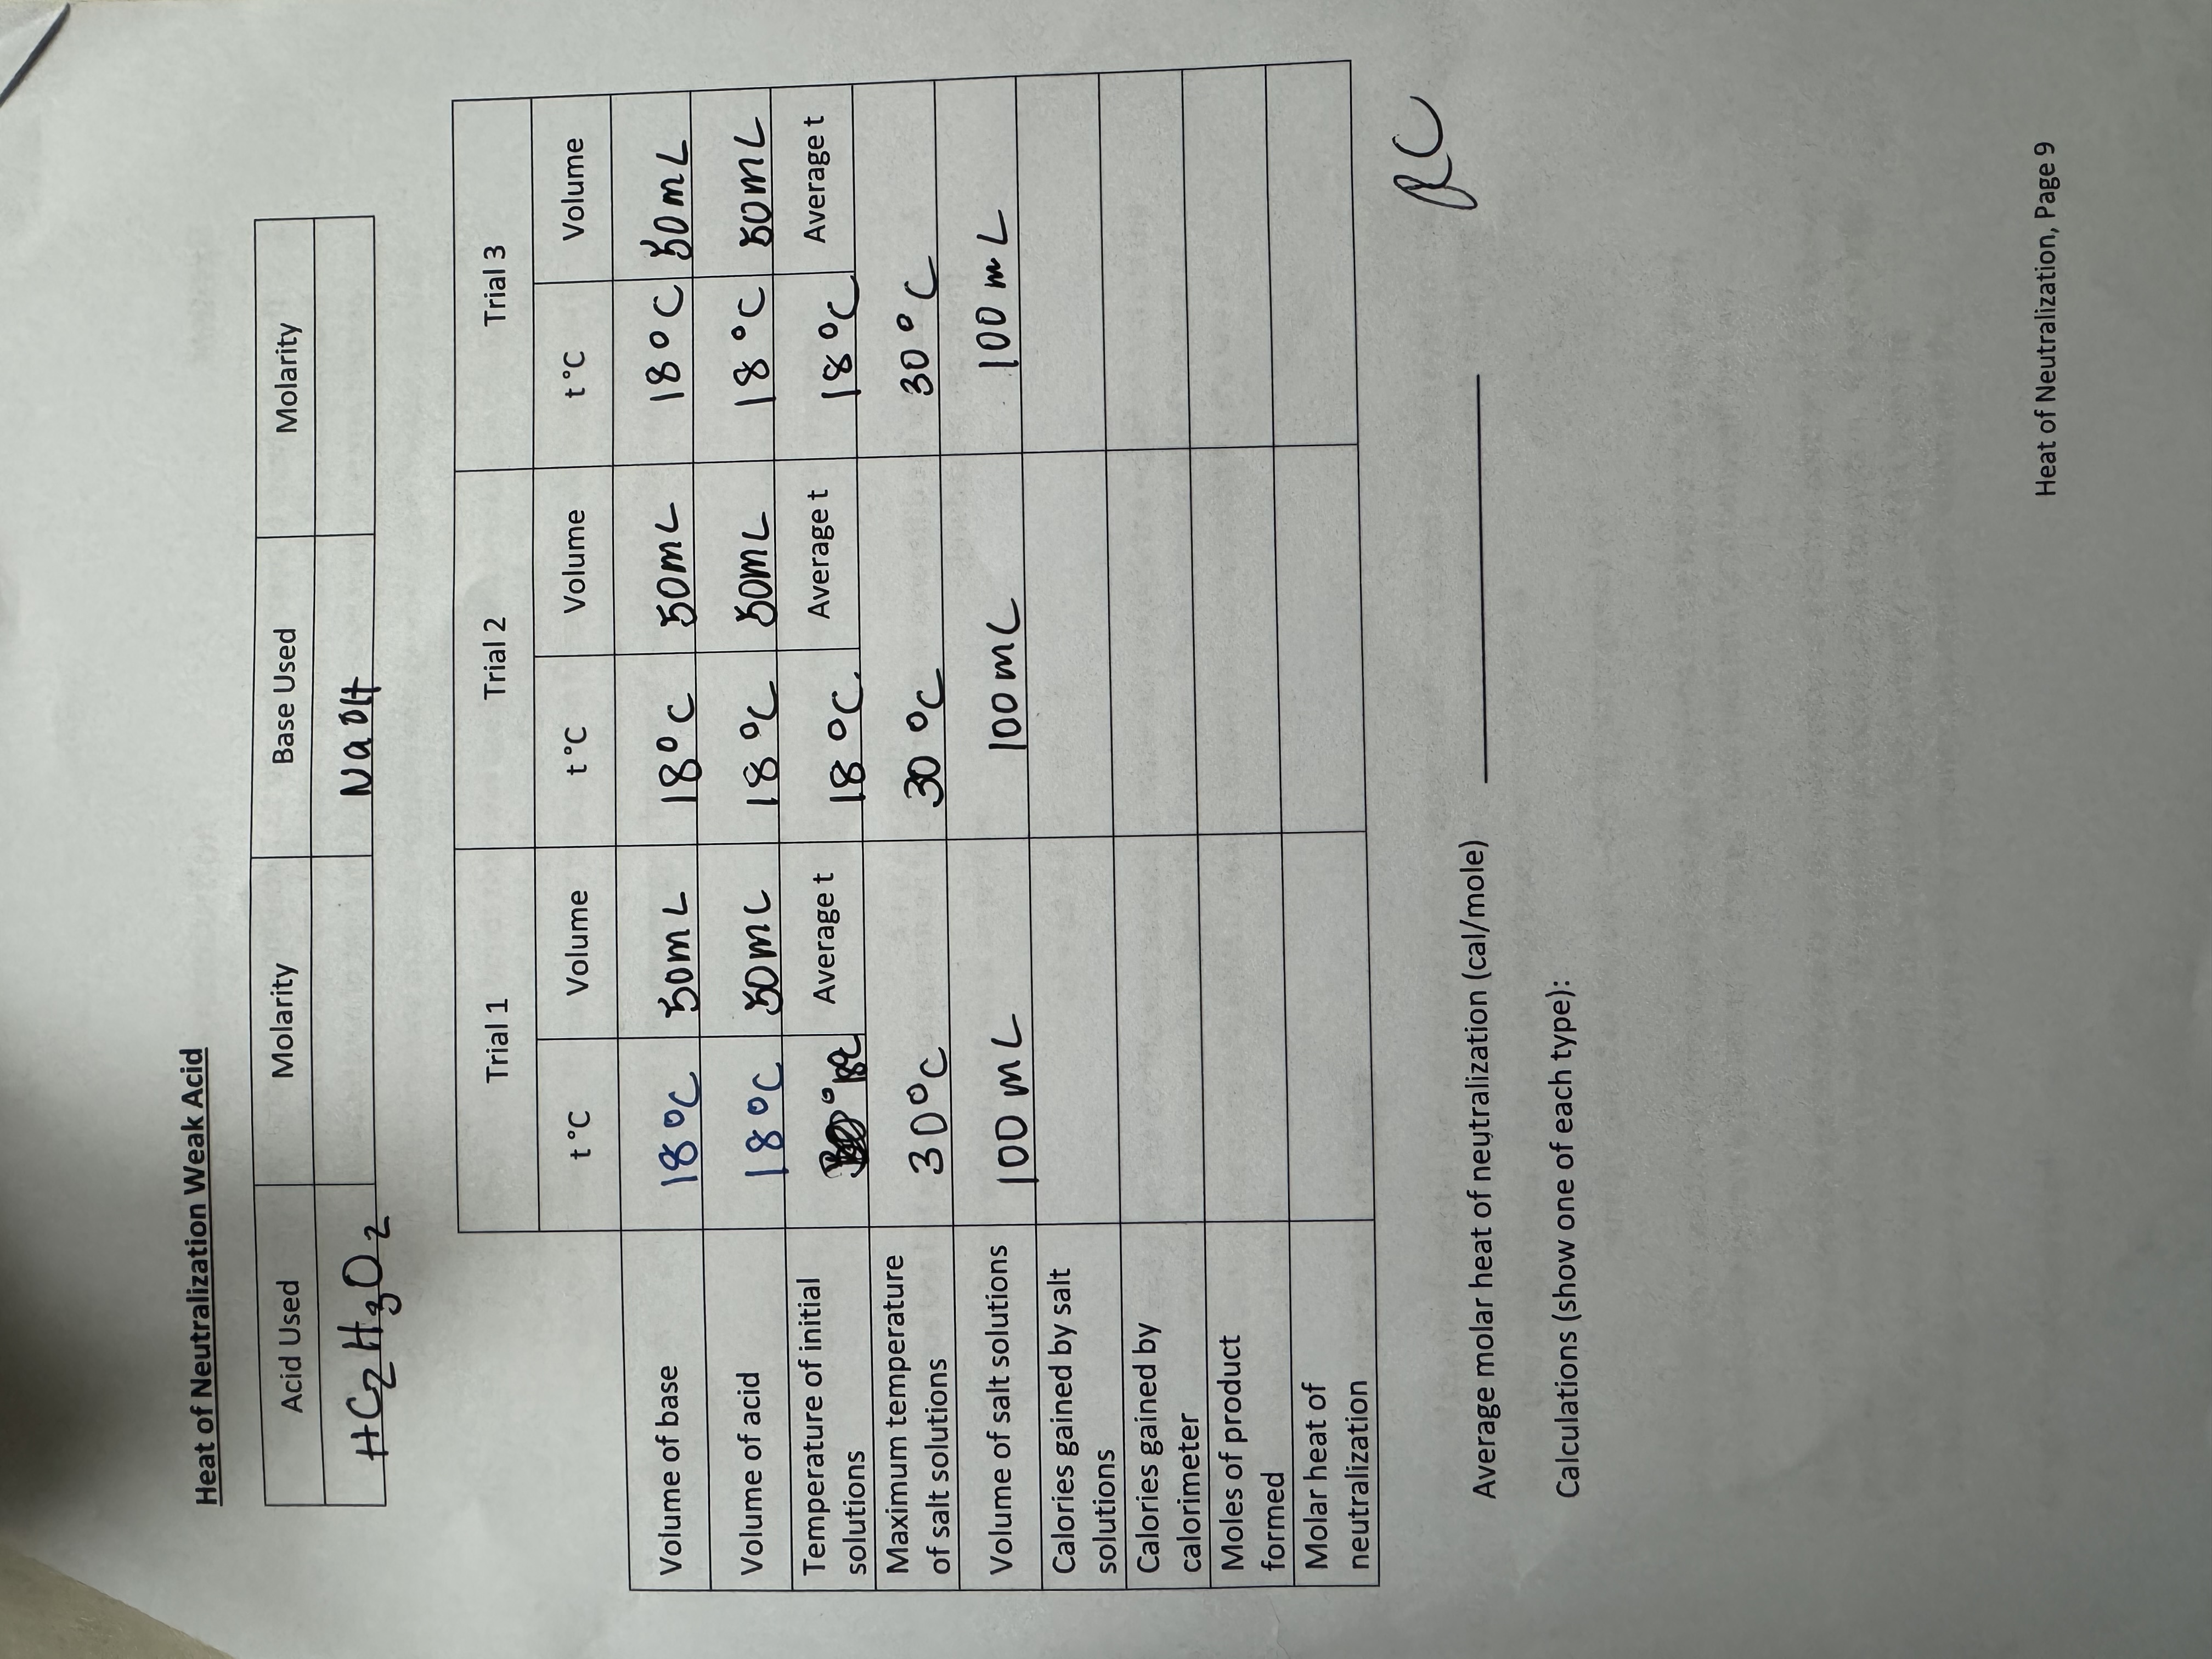 Heat of Neutralization Weak Acid
Acid Used Molarity Base Used Molarity
HC2H3O2 NaOH
Trial 1 Trial 2 Trial 3
t °C Volume t °C Volume t °C Volume
Volume of base 18°C 50mL 18°C 50mL 18°C 50mL
Volume of acid 18°C 50mL 18°C 50mL 18°C 50mL
Temperature of initial solutions Average t 18°C Average t 18°C Average t
Maximum temperature of salt solutions 30°C 30°C 30°C
Volume of salt solutions 100 mL 100mL 100 mL
Calories gained by salt solutions
Calories gained by calorimeter
Moles of product formed
Molar heat of neutralization
Average molar heat of neutralization (cal/mole)
Calculations (show one of each type):
Heat of Neutralization, Page 9